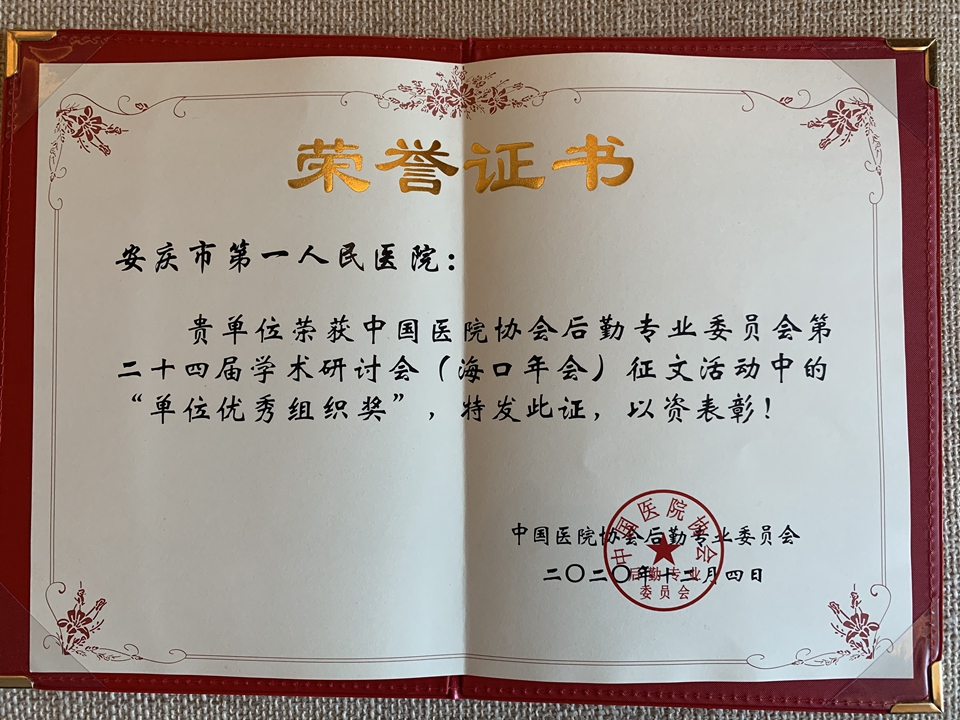 荣誉证书
安庆市第一人民医院：
贵单位荣获中国医院协会后勤专业委员会第
二十四届学术研讨会（海口年会）征文活动中的
“单位优秀组织奖”，特发此证，以资表彰！
中国医院协会后勤专业委员会
二〇二〇年十二月四日
中国医院协会
后勤专业
委员会